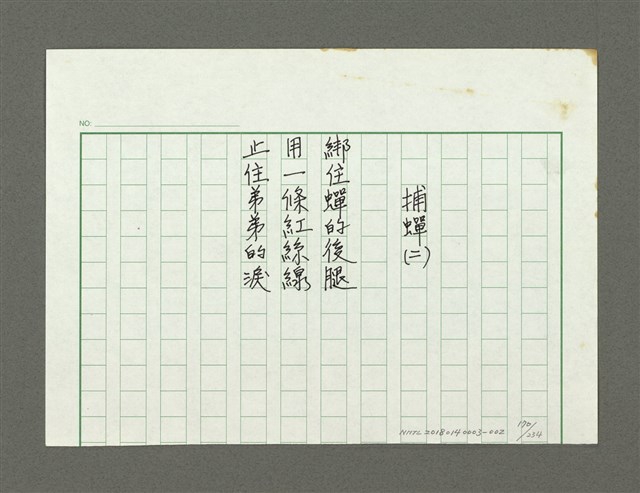 NO:
捕蟬(二)
綁住蟬的後腿
用一條紅絲線
止住弟弟的淚
NMTL20180140003-002
190/234